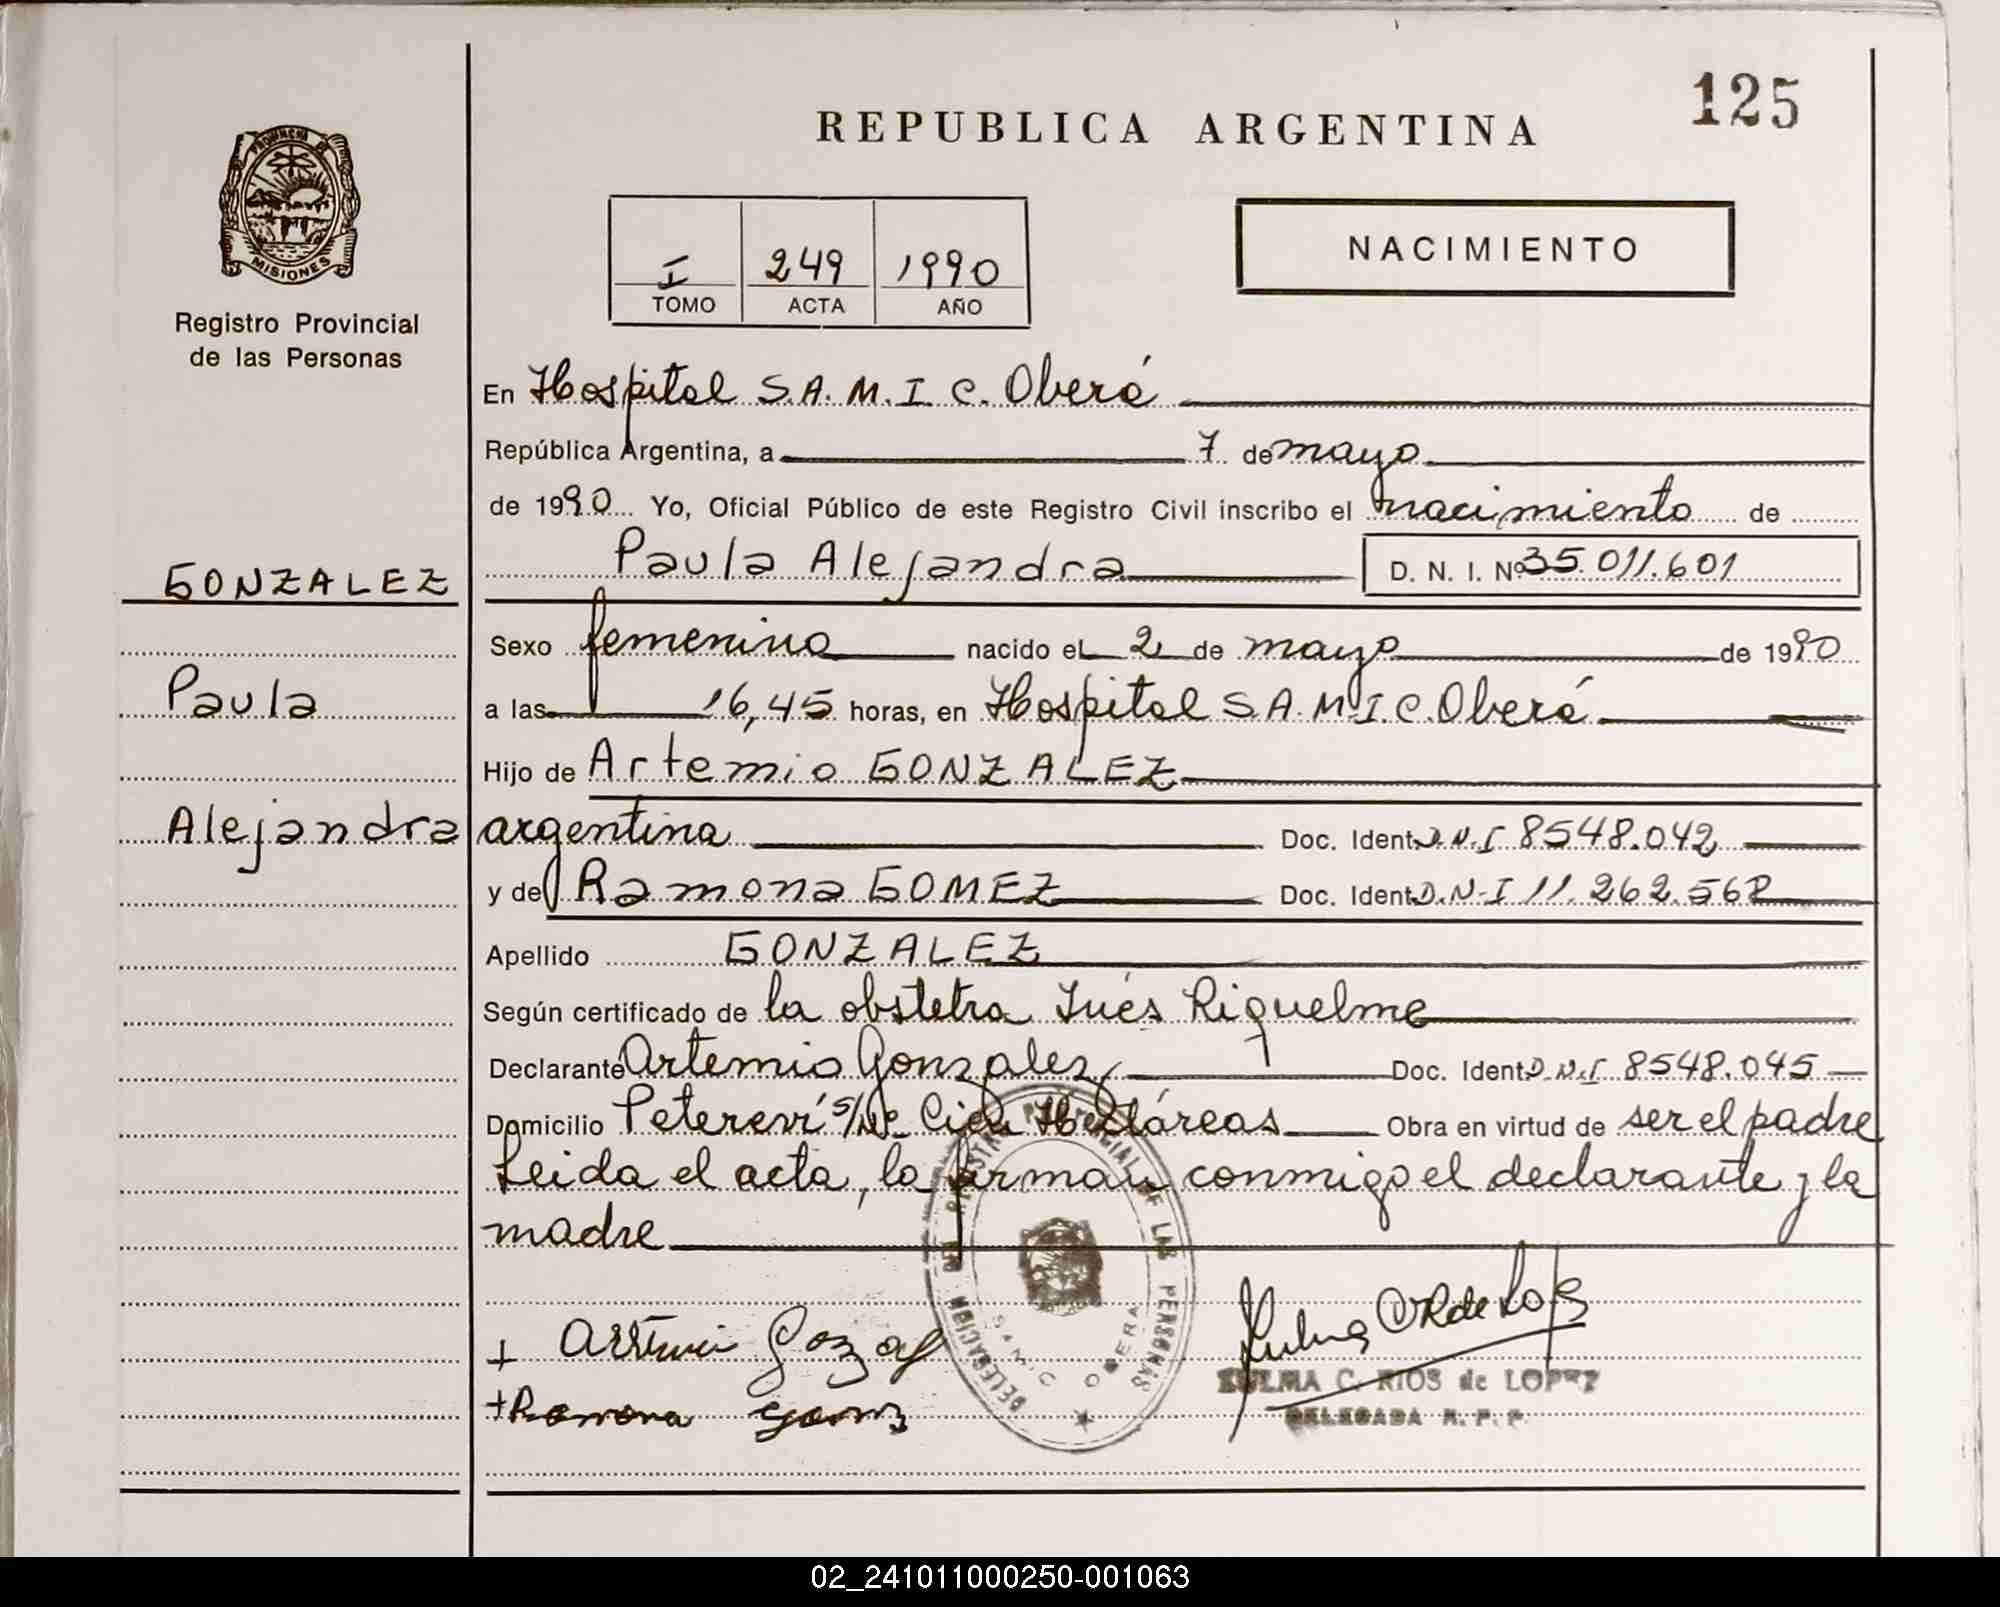 125
REPUBLICA ARGENTINA
PROVINCIA DE
MISIONES
Registro Provincial
de las Personas
I 249 1990
TOMO ACTA AÑO
NACIMIENTO
En Hospital S.A.M.I.C. Oberá
República Argentina, a 7 de mayo
de 1990 Yo, Oficial Público de este Registro Civil inscribo el nacimiento de
Paula Alejandra D. N. I. Nº 35.011.601
GONZALEZ
Sexo femenino nacido el 2 de mayo de 1990
Paula
a las 16,45 horas, en Hospital S.A.M.I.C. Oberá
Hijo de Artemio GONZALEZ
Alejandra
argentina Doc. Ident. D.N.I 8548.042
y de Ramona GOMEZ Doc. Ident. D.N.I 11.262.562
Apellido GONZALEZ
Según certificado de la obstetra Inés Riquelme
Declarante Artemio Gonzalez Doc. Ident. D.N.I 8548.045
Domicilio Peterevi s/Nº Cien Hectáreas Obra en virtud de ser el padre
Leida el acta, la firman conmigo el declarante y la
madre
DELEGACION DEL REGISTRO PROVINCIAL DE LAS PERSONAS
SAMIC OBERA
+ +Ramona
ZULMA C. RIOS de LOPEZ
DELEGADA R. P. P.
02_241011000250-001063